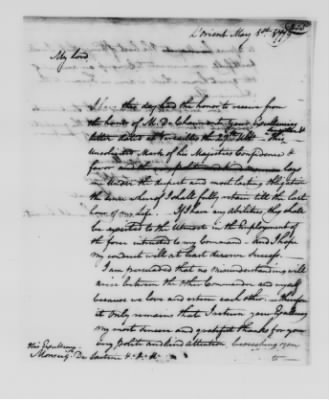 L'orient May 1st 1779
My Lord,
I have this day had the honor to receive from
the hands of M. De Chaumont your Excellency's
letter dated at Versailles the 27th Ult.
unlimited Mark of his Majesties Confidence &
favor and the lays
me Under the highest and most lasting obligation
the sence whereof I shall fully retain till the last
hour of my life. If I have any abilities, they shall
be exerted to the Utmost in the Employment of
the force intended to my Command. And I hope
my conduct will at least deserve success.
I am persuaded that no misunderstanding will
arise between the other Commander and myself
because we love and esteem each other.
it only remains that I return your Excellency
my most sincere and grateful thanks for your
very polite and kind attention, beseeching you
to
His Excellency
Monseig. De Sartine